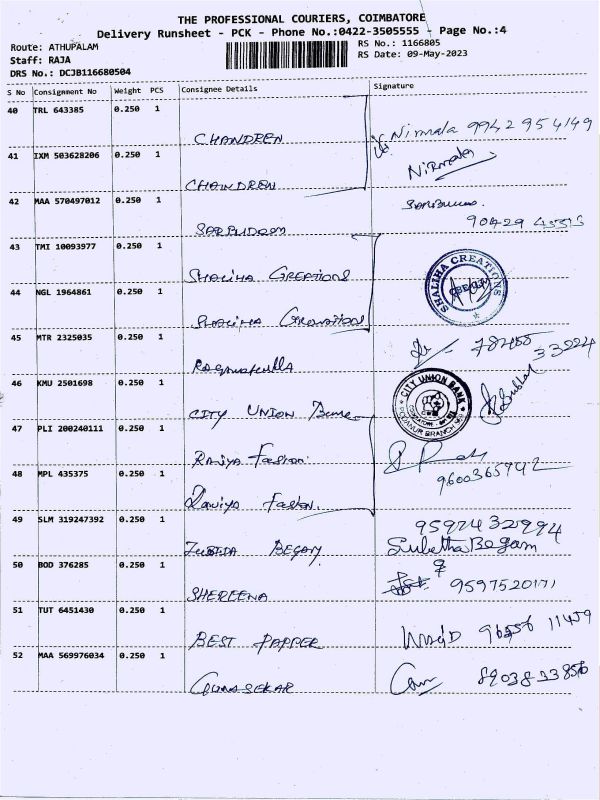 THE PROFESSIONAL COURIERS, COIMBATORE
Delivery Runsheet - PCK - Phone No.:0422-3505555 - Page No.:4
Route: ATHUPALAM RS No.: 1166805
Staff: RAJA RS Date: 09-May-2023
DRS No.: DCJB116680504
S No Consignment No Weight PCS Consignee Details Signature
40 TRL 643385 0.250 1
CHANDREN Nirmala 9942954149
41 IXM 503628206 0.250 1
CHANDREN Nirmala
42 MAA 570497012 0.250 1
90429
43 TMI 10093977 0.250 1
SHALIHA CREATIONS
SHALIHA CREATIONS
44 NGL 1964861 0.250 1
SHALIHA
45 MTR 2325035 0.250 1
33224
46 KMU 2501698 0.250 1
CITY UNION
CITY UNION BANK
47 PLI 200240111 0.250 1
Raniya Fashion
48 MPL 435375 0.250 1
Raniya 9600365742
49 SLM 319247392 0.250 1
9597432994
BEGAM Subetha Begam
50 BOD 376285 0.250 1
SHEREENA 9597520171
51 TUT 6451430 0.250 1
BEST PAPPER 11459
52 MAA 569976034 0.250 1
GUNASEKAR 8903833856